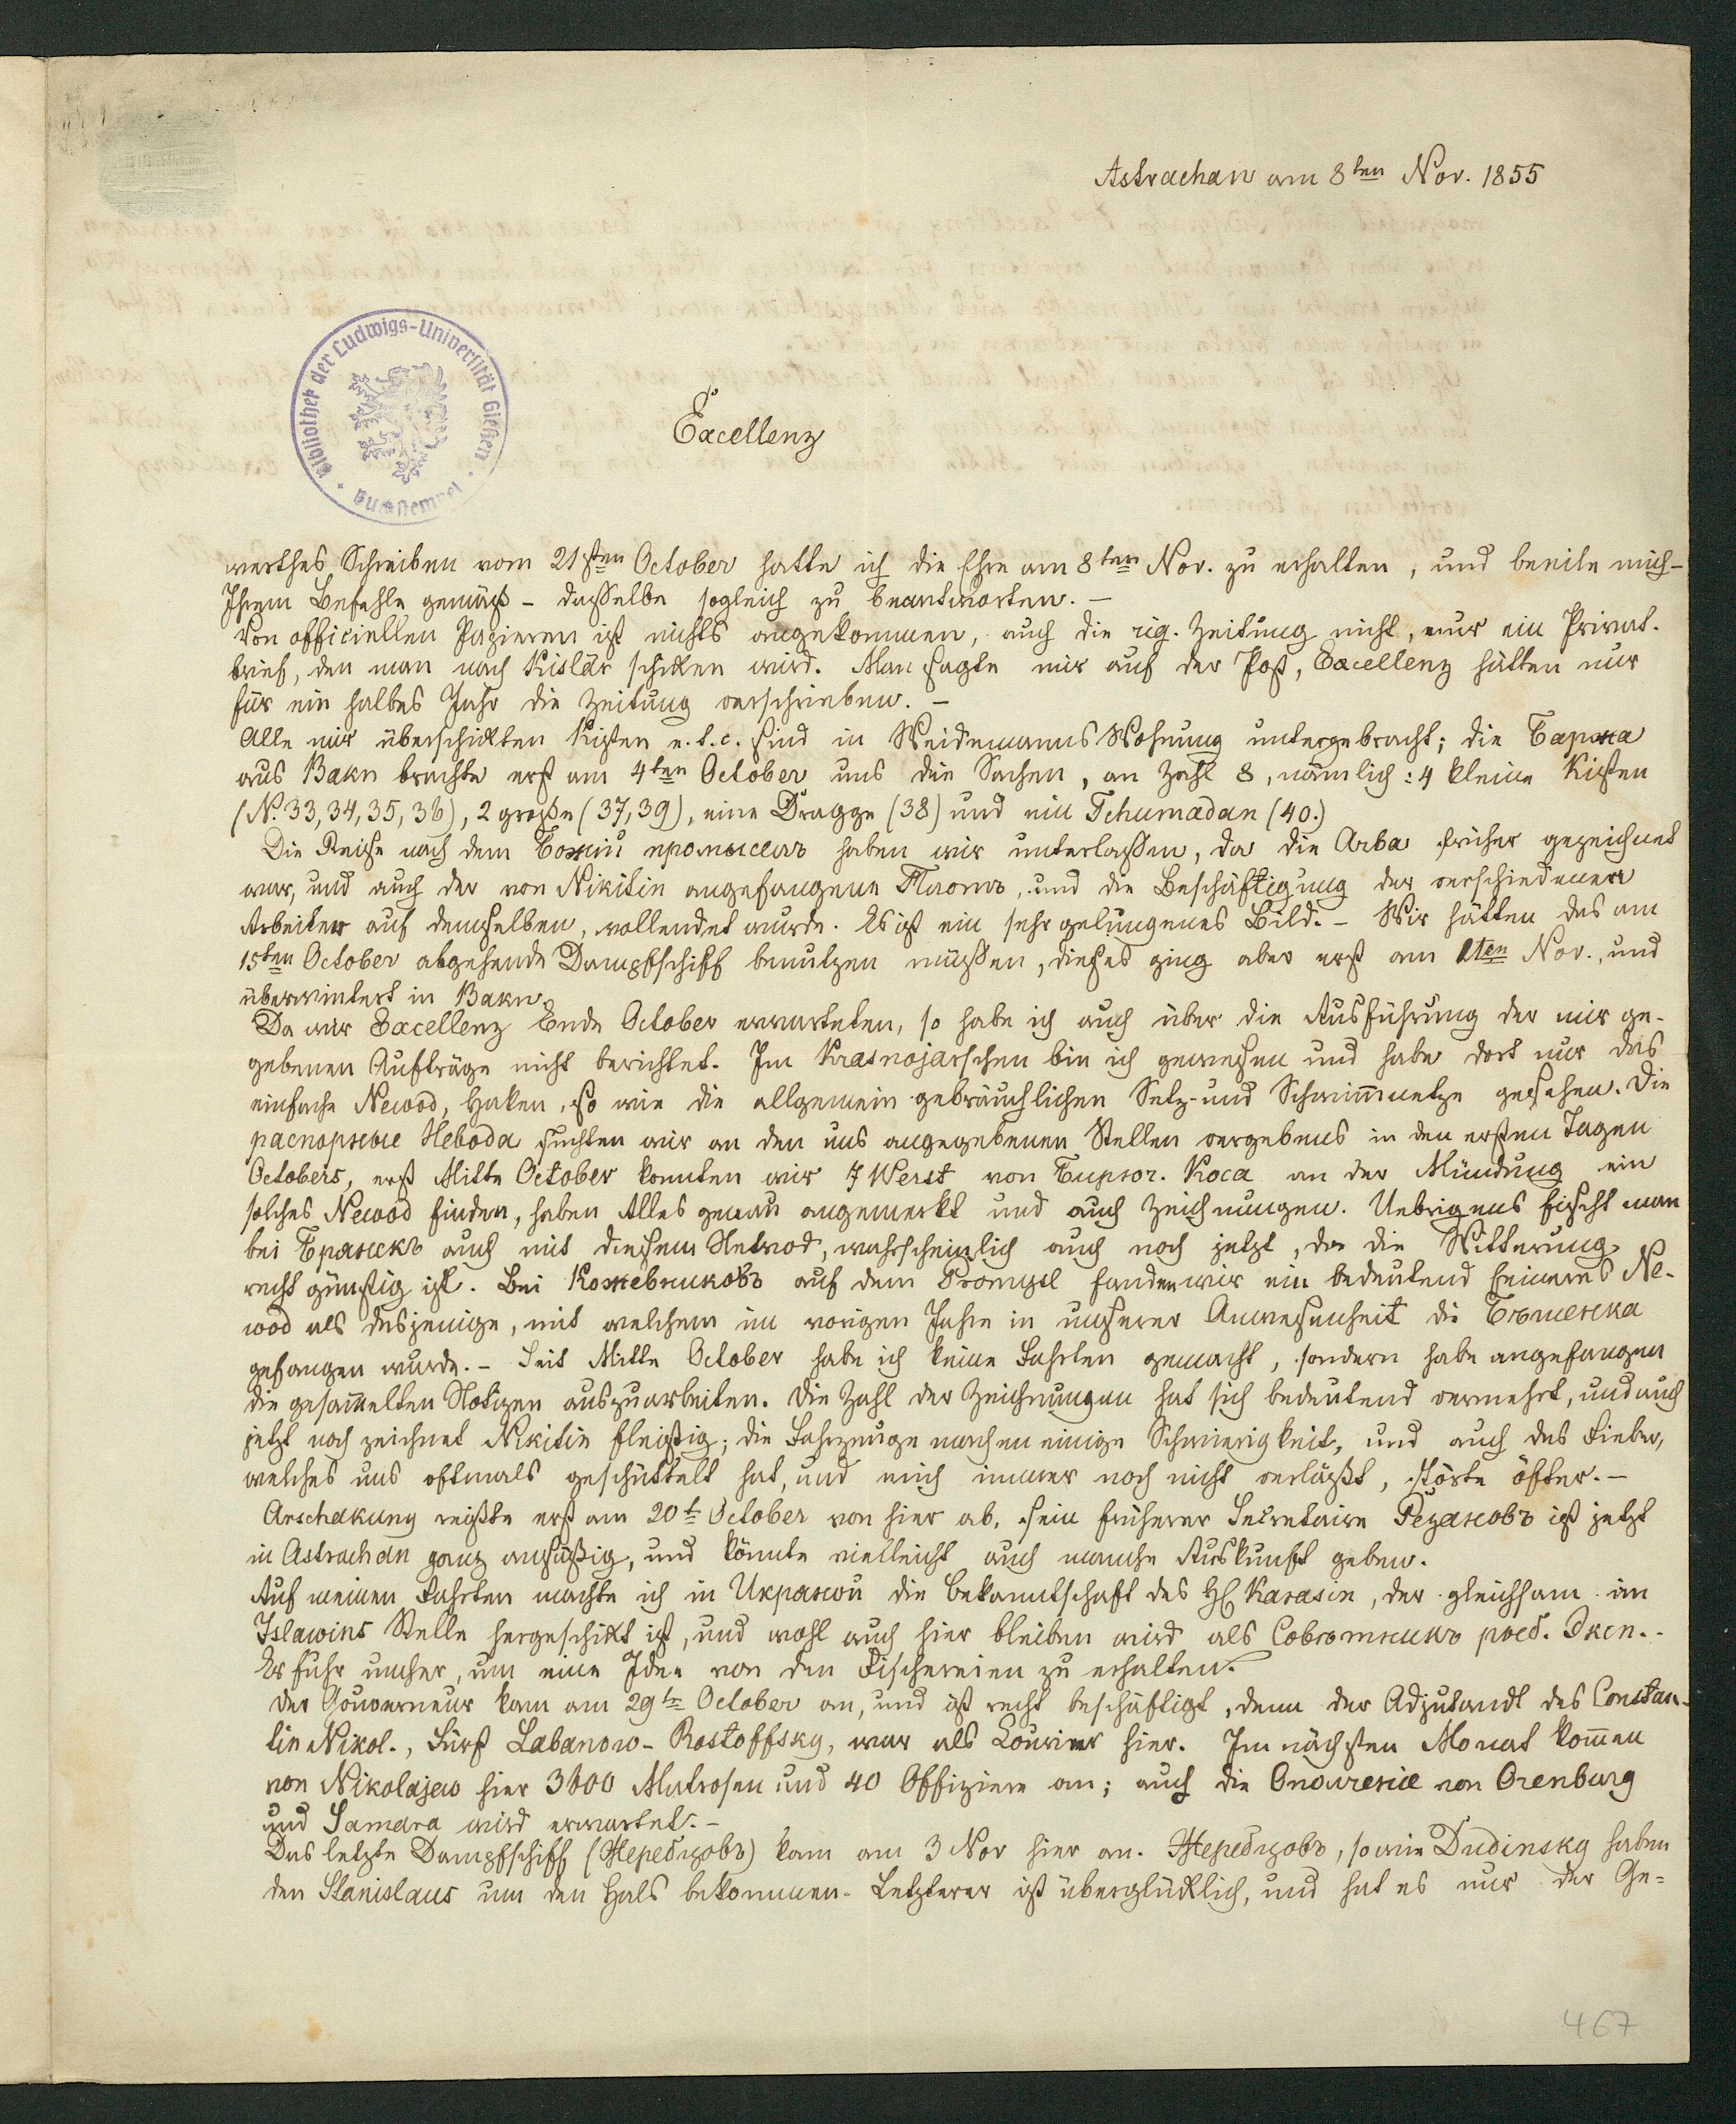 Astrachan am 8ten Nov. 1855
Bibliothek der Ludwigs-Universität Gießen
Excellenz
werthes Schreiben vom 21sten October hatte ich die Ehre am 8ten Nov. zu erhalten, und beeile mich -
Ihrem Befehle gemäß - dasselbe sogleich zu beantworten. -
Von officiellen Papieren ist nichts angekommen, auch die rig. Zeitung nicht, nur ein Privat-
brief, den man nach Kislär schiken wird. Man sagte mir auf der Post, Excellenz hätten nur
für ein halbes Jahr die Zeitung verschrieben. -
Alle mir überschikten Kisten e.t.c. sind in Weidemanns Wohnung untergebracht; die
aus Baku brachte erst am 4ten October uns die Sachen, an Zahl 8, nämlich: 4 kleine Kisten
(N. 33, 34, 35, 36), 2 große (37, 39), eine Dragge (38) und ein Tchumadan (40.)
Die Reise nach dem Божій промыселъ haben wir unterlaßen, da die Arba früher gezeichnet
war, und auch der von Nikitin angefangene Плотъ, und die Beschäftigung der verschiedenen
Arbeiter auf demselben, vollendet wurde. Es ist ein sehr gelungenes Bild. - Wir hätten das am
15ten October abgehende Dampfschiff benutzen müßen, dieses ging aber erst am 1ten Nov., und
überwintert in Baku.
Da wir Excellenz Ende October erwarteten, so habe ich auch über die Ausführung der mir ge-
gebenen Aufträge nicht berichtet. Im Krasnojarschen bin ich gewesen und habe dort nur das
einfache Newod, Haken, so wie die allgemein gebräuchlichen Setz- und Schwim̅netze gesehen. Die
распорные Невода suchten wir an den uns angegebenen Stellen vergebens in den ersten Tagen
Octobers, erst Mitte October konnten wir 7 Werst von Коса an der Mündung ein
solches Newod finden, haben Alles genau angemerkt und auch Zeichnungen. Uebrigens fischt man
bei Брянскъ auch mit diesem Netwod, wahrscheinlich auch noch jetzt, da die Witterung
recht günstig ist. Bei Кожевниковъ auf dem Promysl fanden wir ein bedeutend feineres Ne-
wod als dasjenige, mit welchem im vorigen Jahre in unserer Anwesenheit die Бѣшенка
gefangen wurde. - Seit Mitte October habe ich keine Fahrten gemacht, sondern habe angefangen
die gesam̅elten Notizen auszuarbeiten. Die Zahl der Zeichnungen hat sich bedeutend vermehrt, und auch
jetzt noch zeichnet Nikitin fleißig; die Fahrzeuge machen einige Schwierigkeit, und auch das Fieber,
welches uns oftmals geschüttelt hat, und mich immer noch nicht verläßt, störte öfter. -
Arschakuny reißte erst am 20t October von hier ab. Sein früherer Secretaire Резановъ ist jetzt
in Astrachan ganz ansäßig, und könnte vielleicht auch manche Auskunft geben.
Auf meinen Fahrten machte ich in Икряной die Bekanntschaft des H Karasin, der gleichsam an
Islawins Stelle hergeschikt ist, und wohl auch hier bleiben wird als Совѣтникъ рыб. Эксп. -
Er fuhr umher, um eine Idee von den Fischereien zu erhalten.
Der Gouverneur kam am 29ten October an, und ist recht beschäftigt, denn der Adjutandt des Constan-
tin Nikol., Fürst Labanow-Rostoffsky, war als Courier hier. Im nächsten Monat kom̅en
von Nikolajew hier 3600 Matrosen und 40 Offiziere an; auch die Ополченiе von Orenburg
und Samara wird erwartet. -
Das letzte Dampfschiff (Жеребцовъ) kam am 3 Nov hier an. Жеребцовъ, so wie Dudinsky haben
den Stanislaus um den Hals bekommen. Letzterer ist überglücklich, und hat es nur der Ge-
467